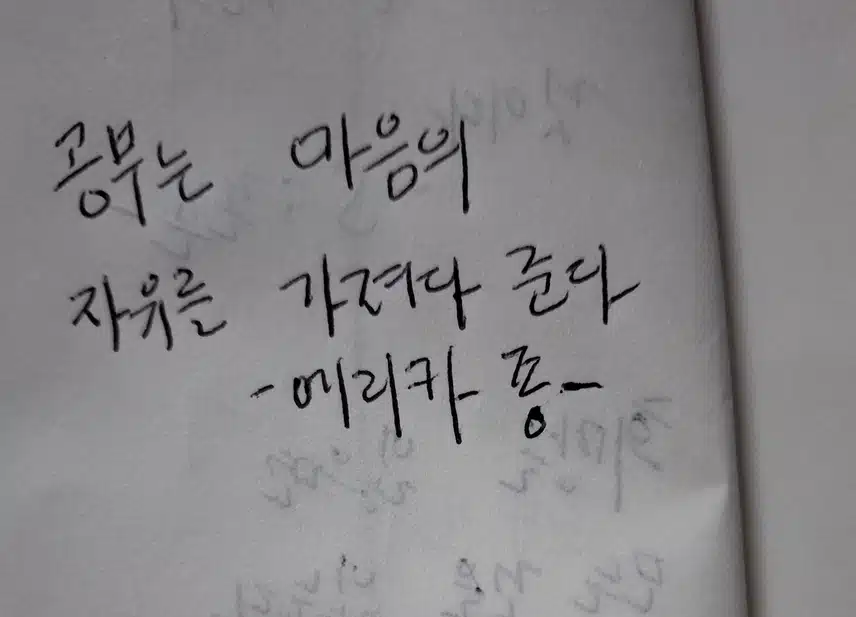 공부는 마음의
자유를 가져다 준다
-에리카 종-